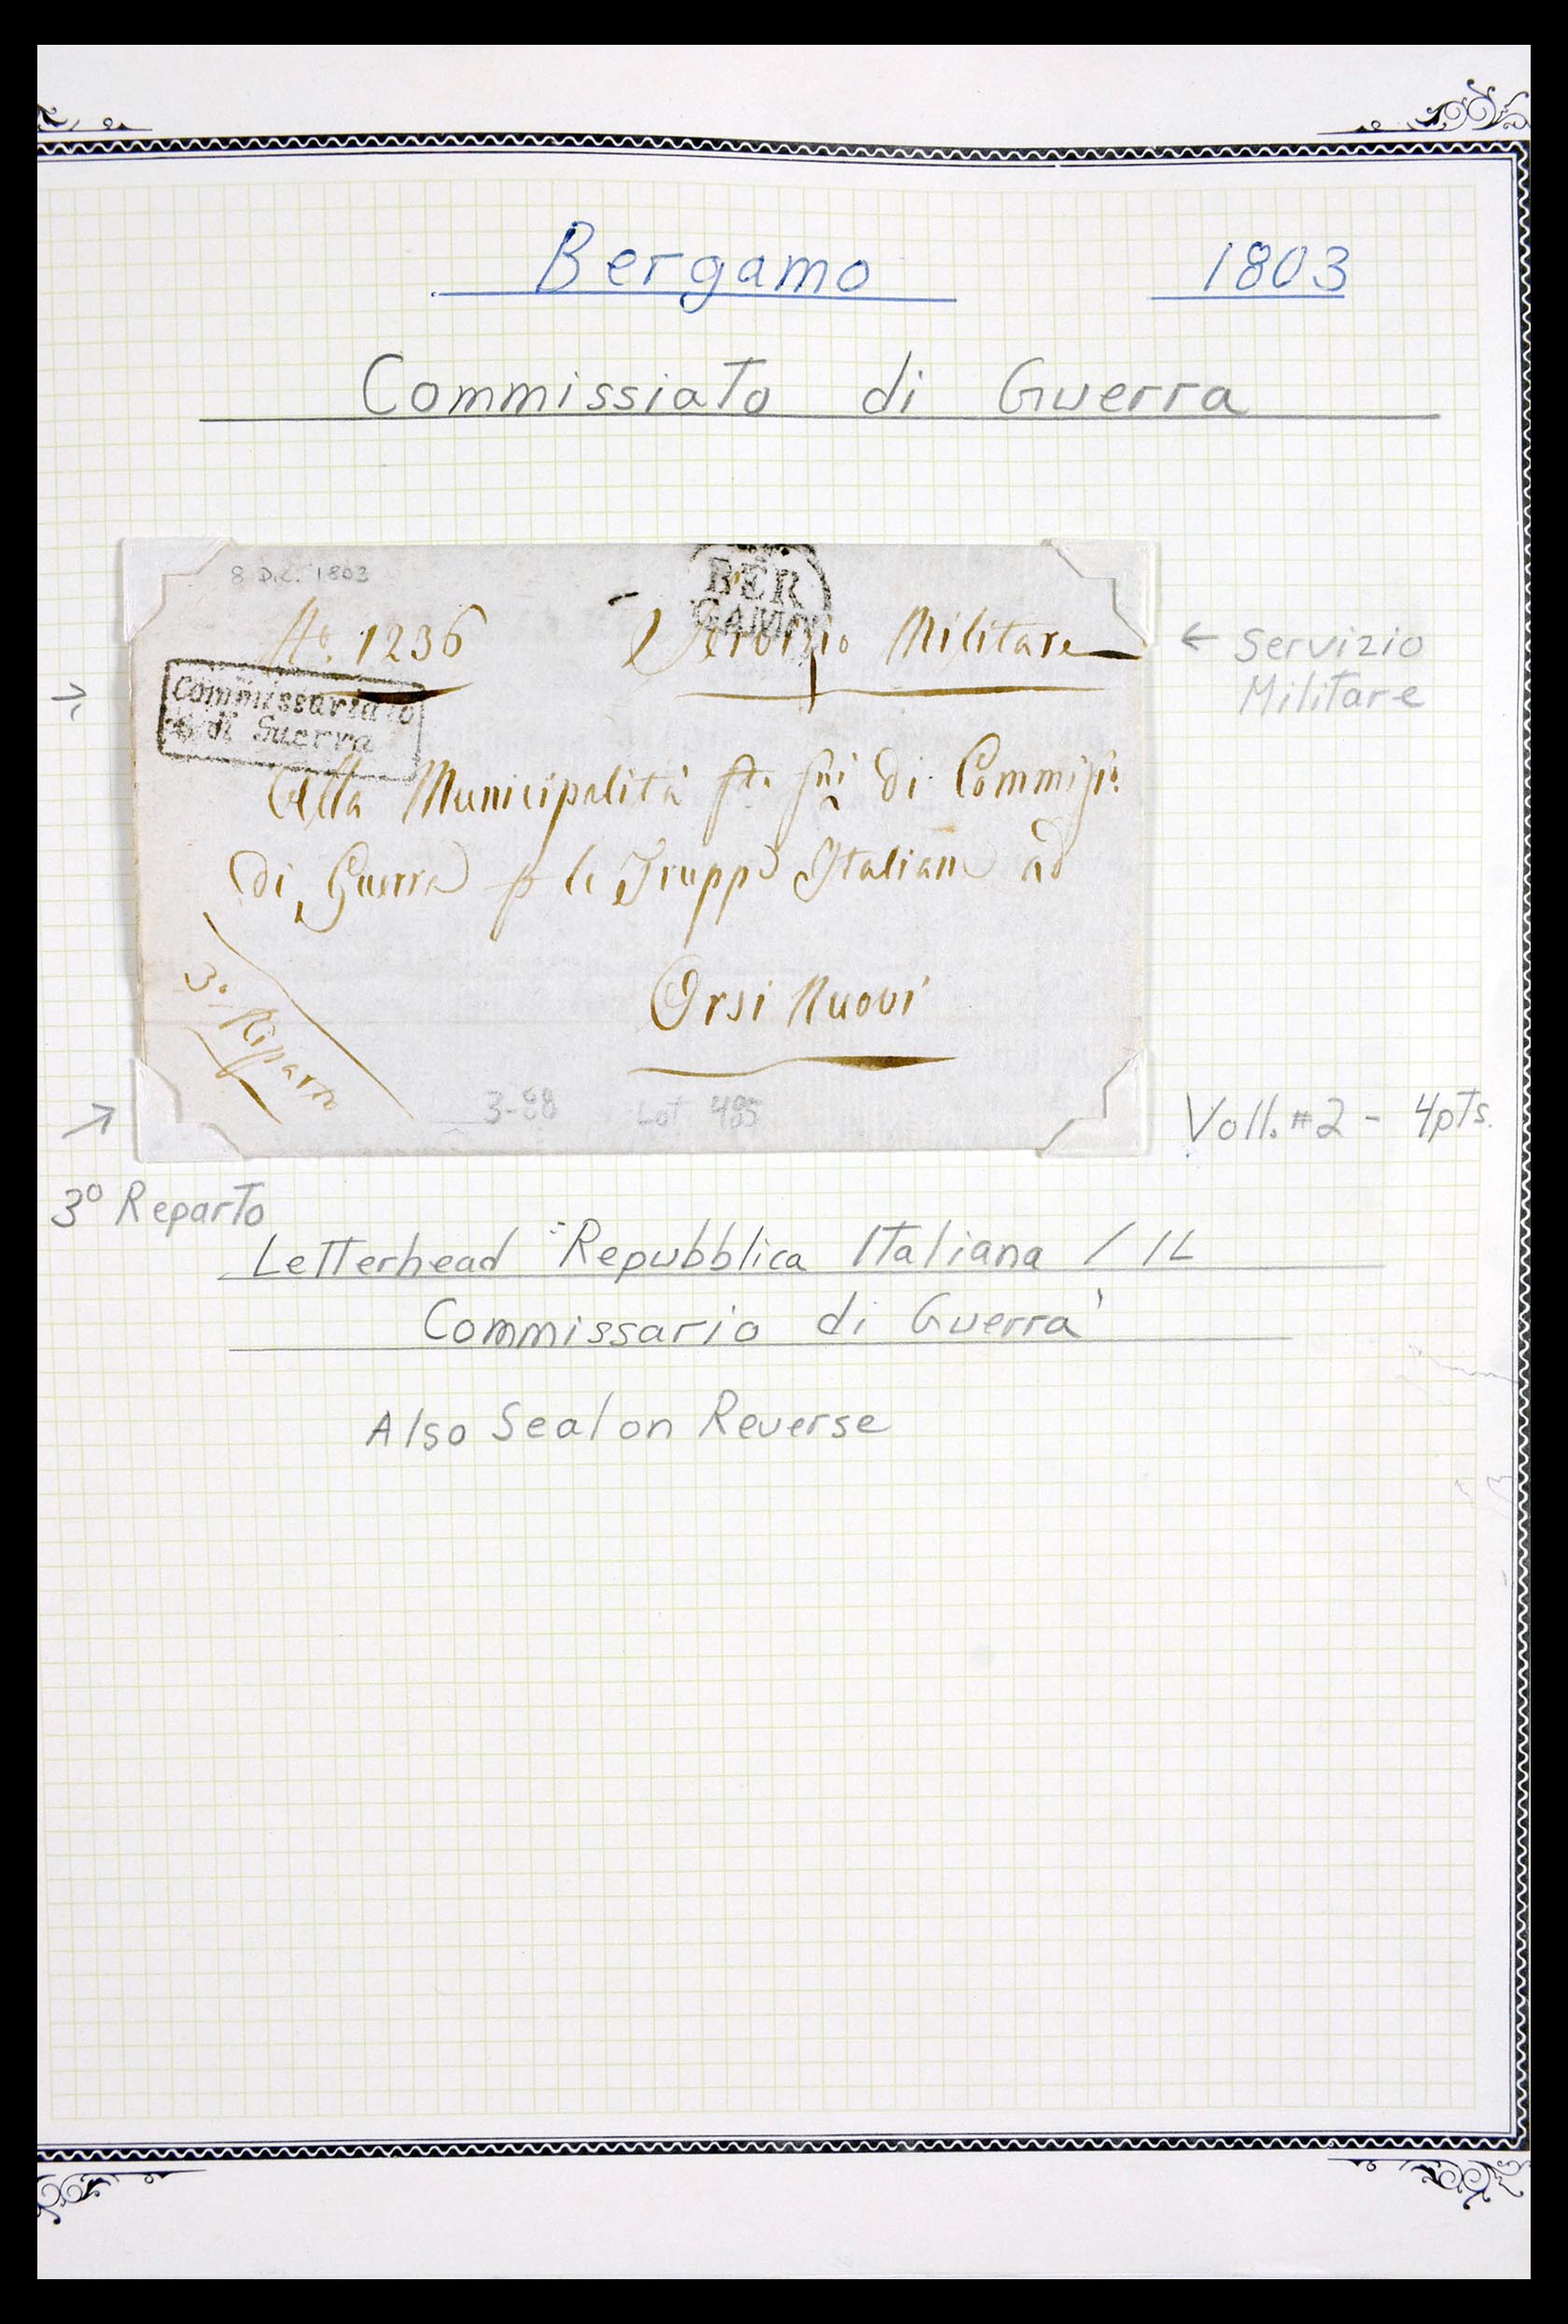 Bergamo 1803
Commissiato di Guerra
8 Dic. 1803
BER
GAMO
No. 1236 Servizio Militare
← Servizio
Militare
Commissariato
di Guerra
Alla Municipalità ff. fni di Commisso
di Guerra p le Truppe Italiane ad
Orsi Nuovi
3o. Riparto
3-88 Lot 495
Voll. #2 - 4pts.
3o Reparto
Letterhead "Repubblica Italiana / IL
Commissario di Guerra'
Also Seal on Reverse